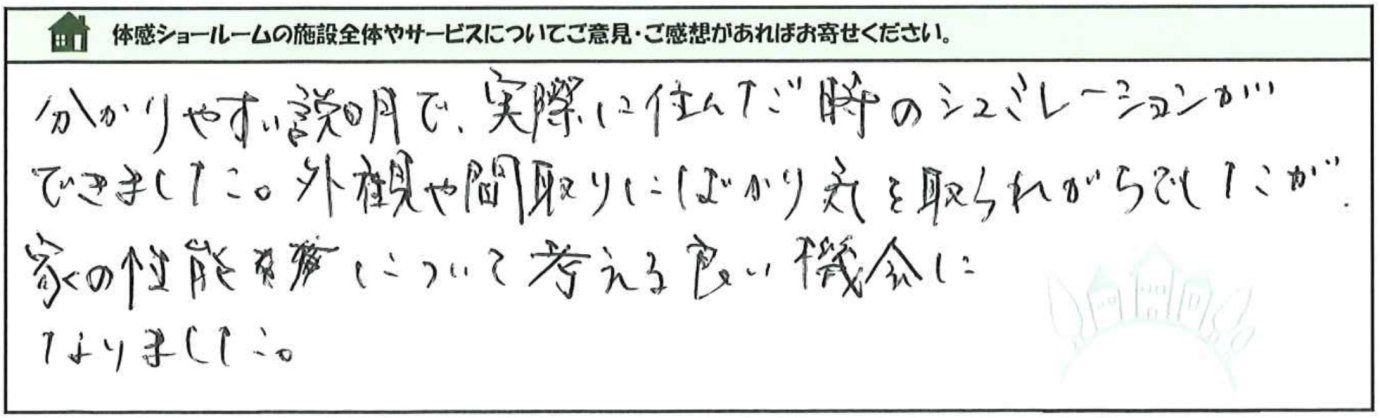 体感ショールームの施設全体やサービスについてご意見・ご感想があればお寄せください。
分かりやすい説明で、実際に住んだ時のシュミレーションが
できました。外観や間取りにばかり気を取られがちでしたが、
家の性能等について考える良い機会に
なりました。